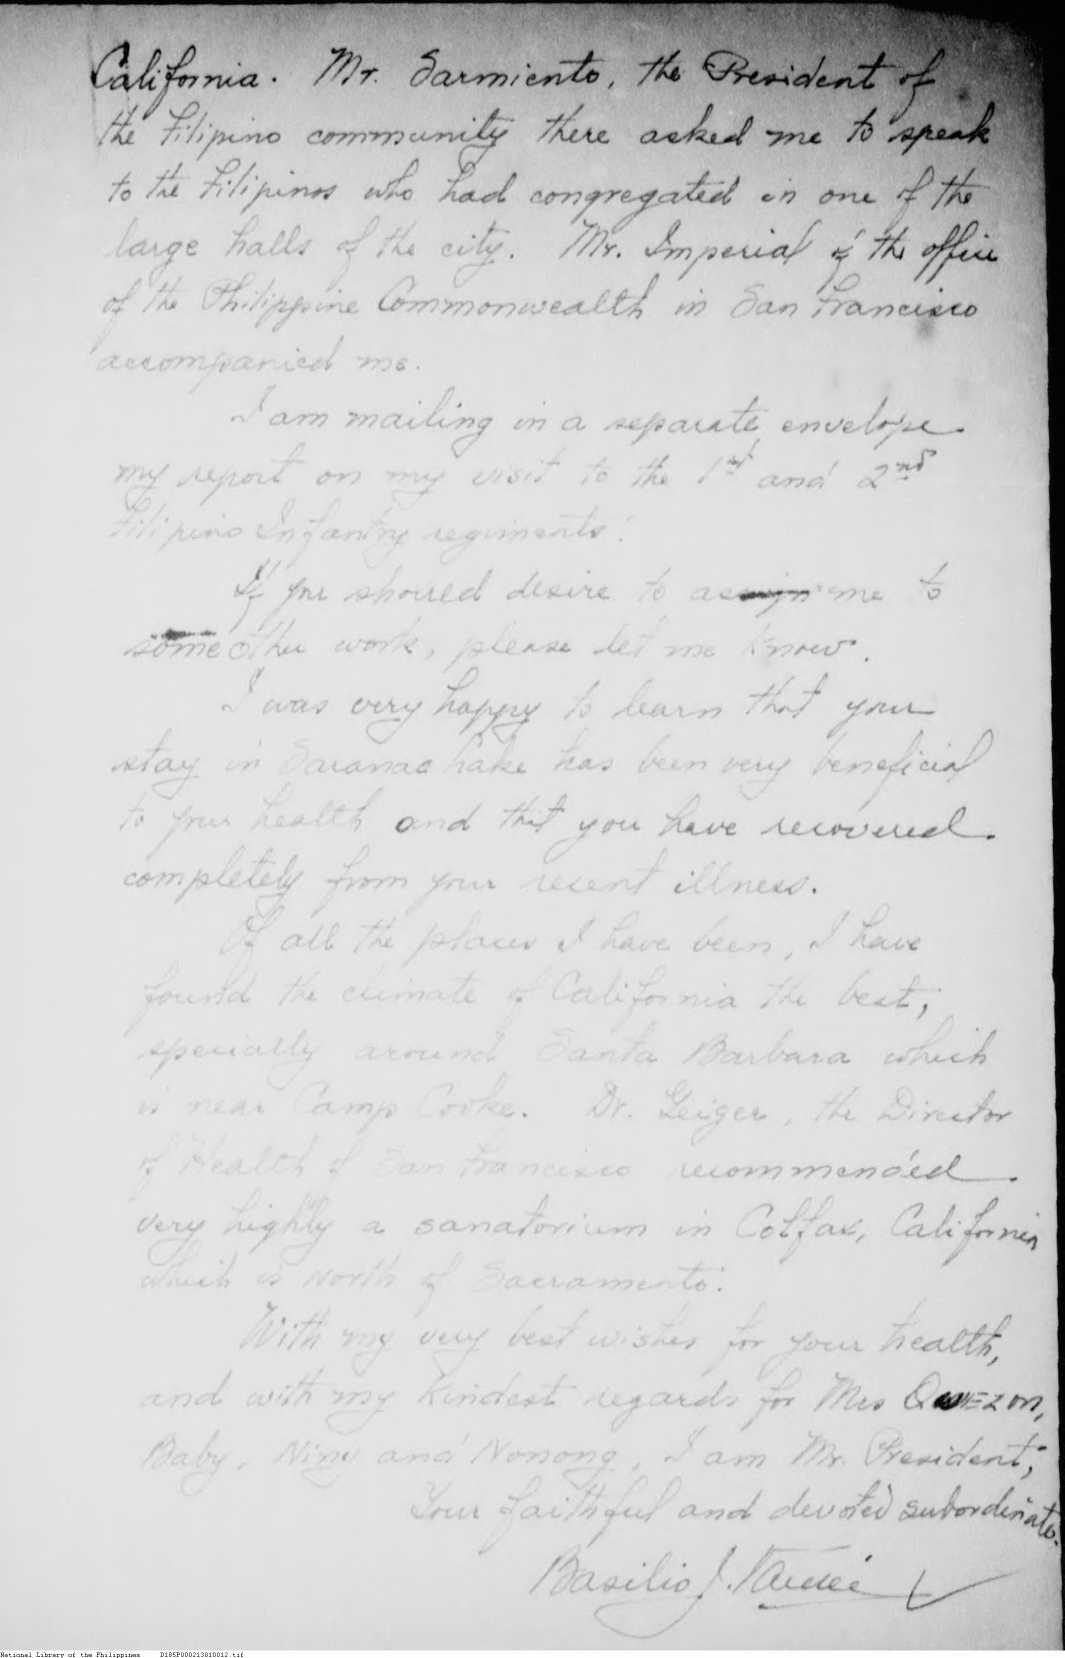 California. Mr. Sarmiento, the President of
the Filipino community there asked me to speak
to the Filipinos who had congregated in one of the
large halls of the city. Mr. Imperial of the office
of the Philippine Commonwealth in San Francisco
accompanied me.
I am mailing in a separate envelope
my report on my visit to the 1st and 2nd
Filipino Infantry regiments.
If you should desire to assign me to
some other work, please let me know.
I was very happy to learn that your
stay in Saranac Lake has been very beneficial
to your health and that you have recovered
completely from your recent illness.
Of all the places I have been, I have
found the climate of California the best,
specially around Santa Barbara which
is near Camp Cooke. Dr. Geiger, the Director
of Health of San Francisco recommended
very highly a sanatorium in Colfax, California
which is north of Sacramento.
With my very best wishes for your health,
and with my kindest regards for Mrs Quezon,
Baby, Niny and Nonong, I am Mr. President,
Your faithful and devoted subordinate.
Basilio J.
National Library of the Philippines D185P000213810012.tif